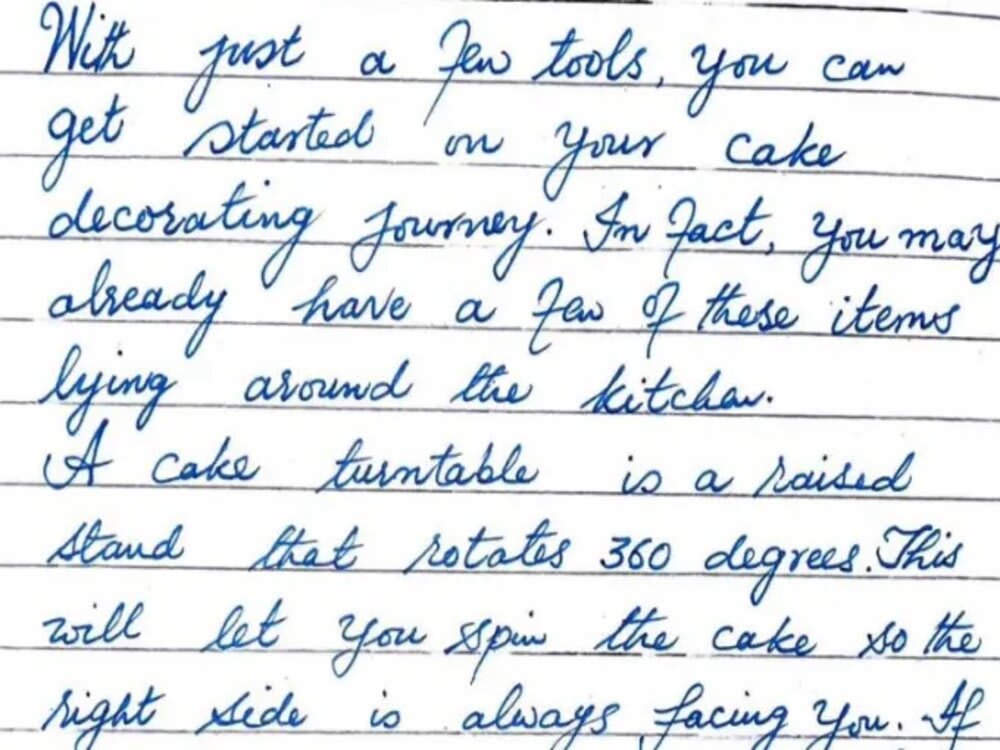 With just a few tools, you can
get started on your cake
decorating journey. In fact, you may
already have a few of these items
lying around the kitchen.
A cake turntable is a raised
stand that rotates 360 degrees. This
will let you spin the cake so the
right side is always facing you. If